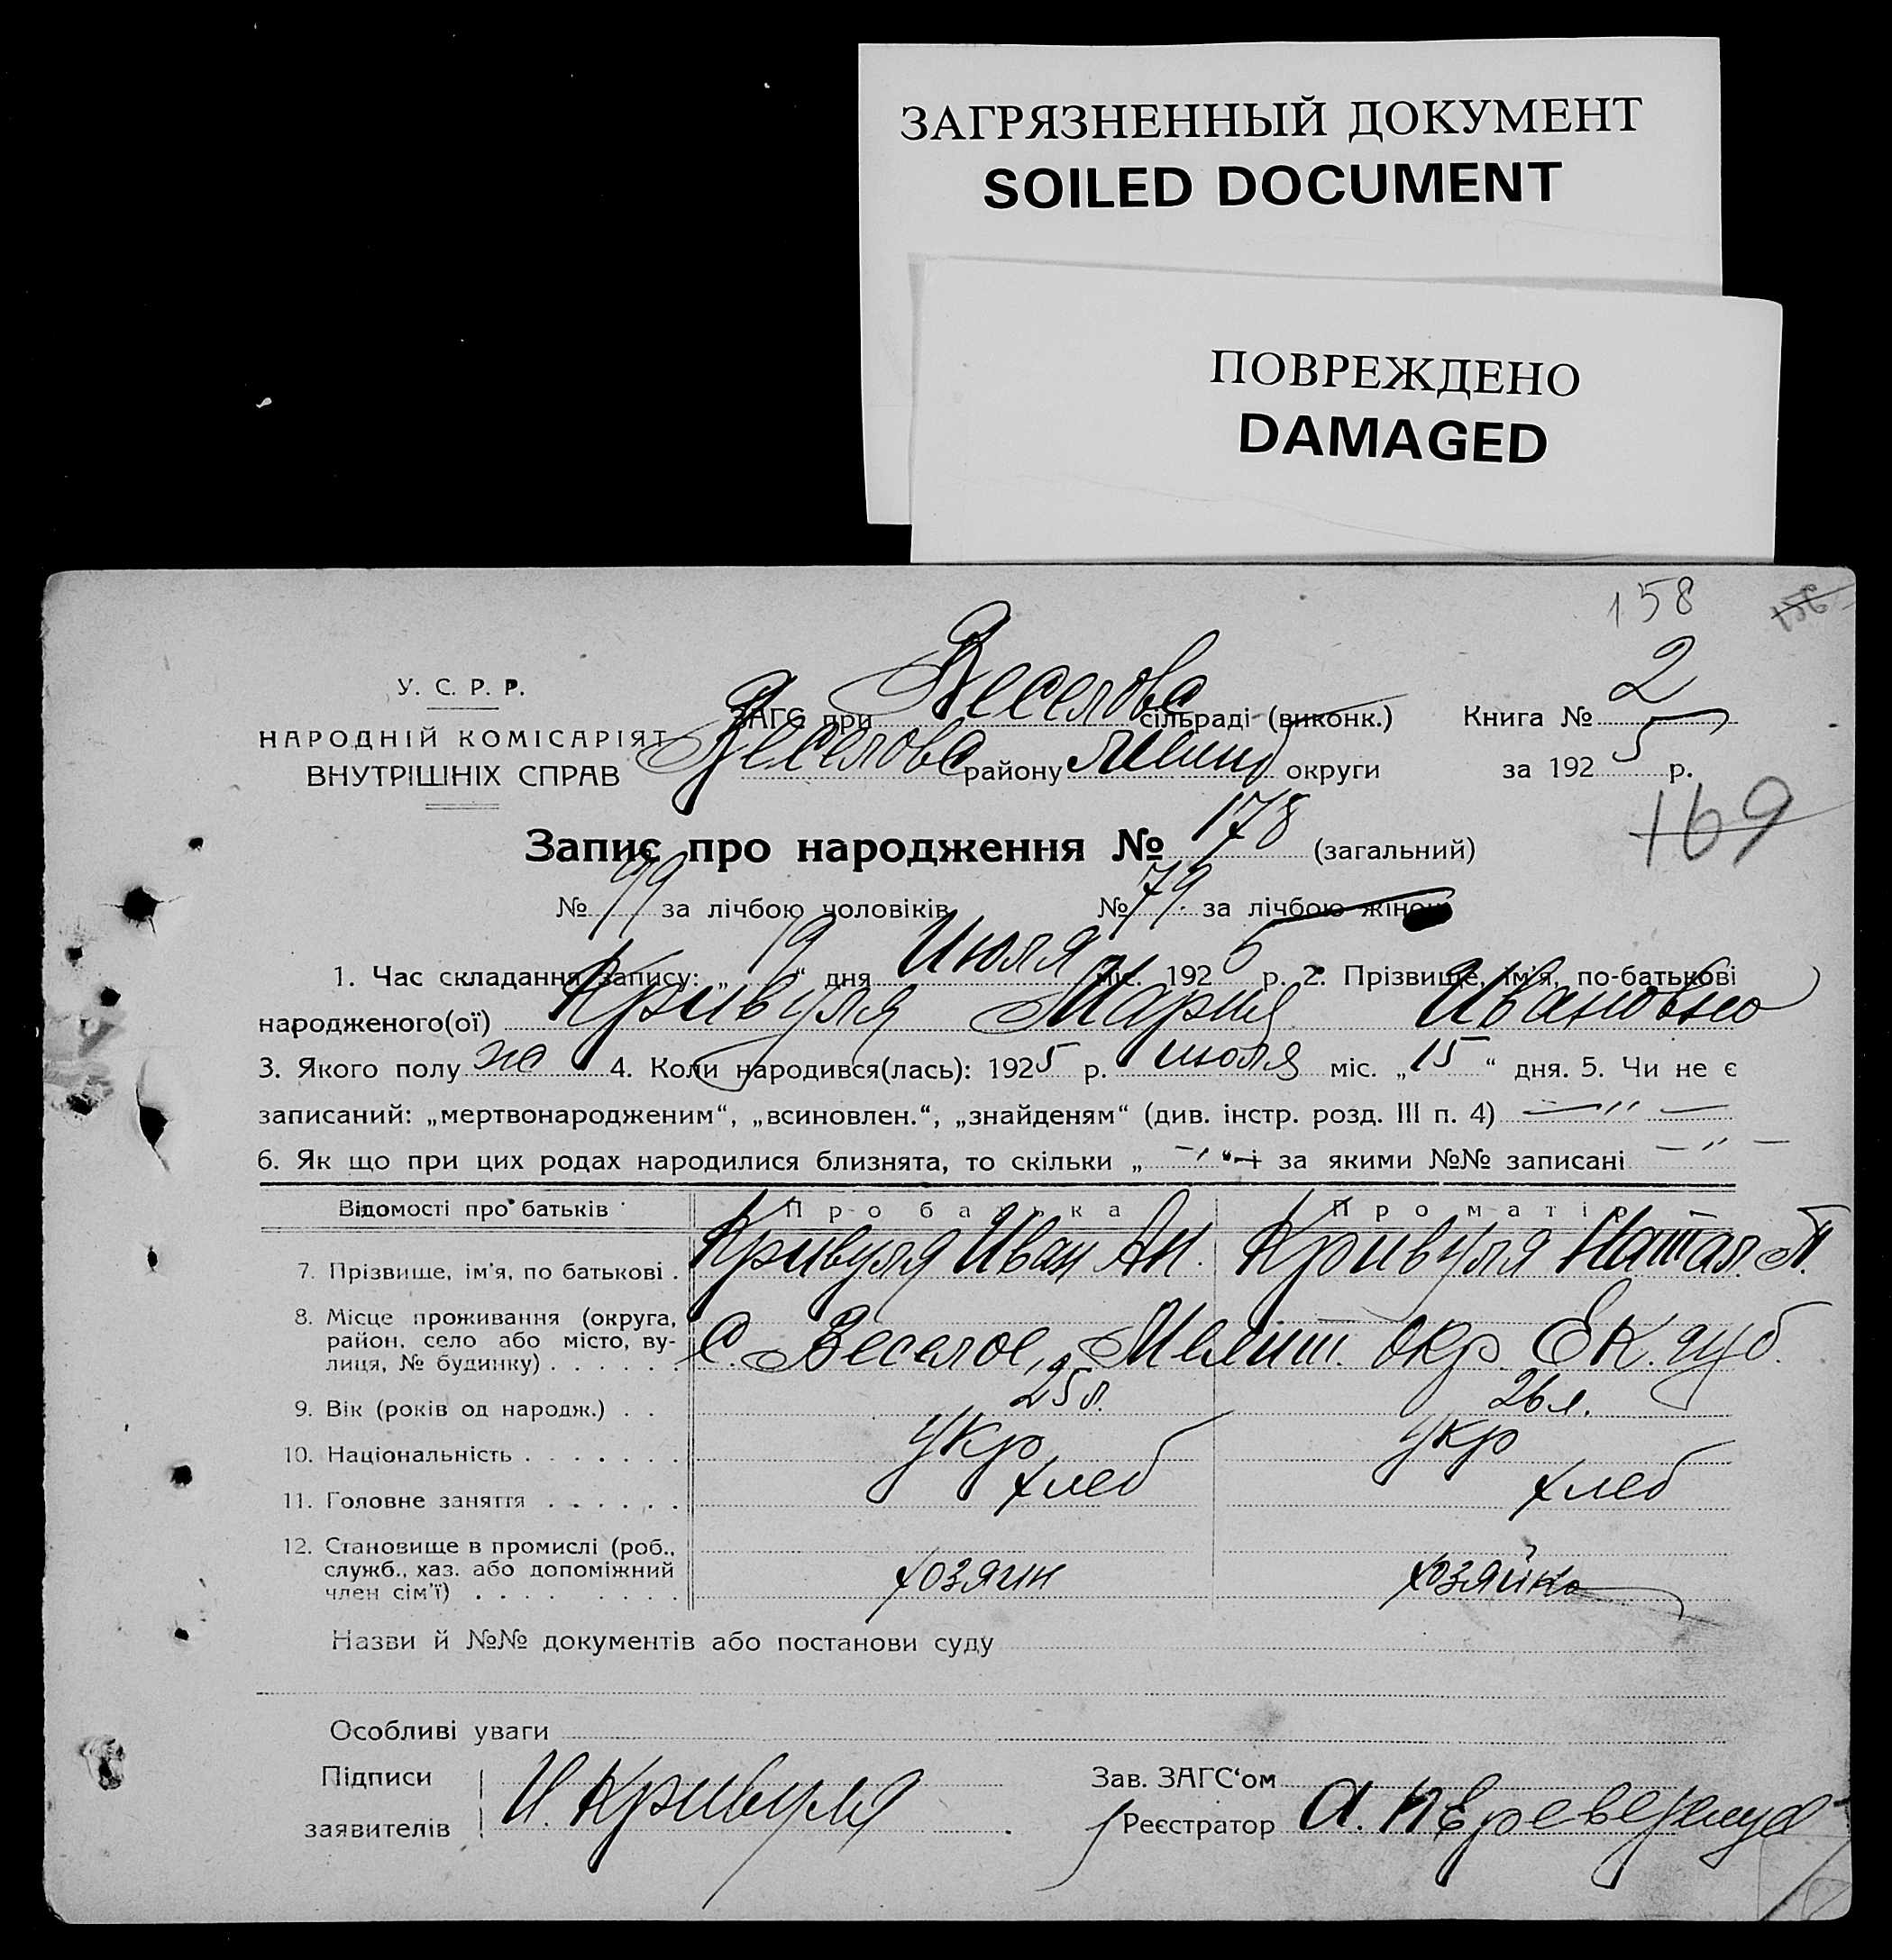 ЗАГРЯЗНЕННЫЙ ДОКУМЕНТ
SOILED DOCUMENT
ПОВРЕЖДЕНО
DAMAGED
158 156
У. С. Р. Р.
НАРОДНІЙ КОМІСАРІЯТ
ВНУТРІШНІХ СПРАВ
ЗАГС при Веселовс сільраді (виконк.) Книга № 2
Веселовс району Мелит округи за 1925 р.
169
Запис про народження № 178 (загальний)
№ 99 за лічбою чоловіків № 79 за лічбою жінок
1. Час складання запису: „19“ дня Июля міс. 1925 р. 2. Прізвище, ім'я, по-батькові
народженого(ої) Кривуля Мария Ивановно
3. Якого полу жс 4. Коли народився(лась): 1925 р. июля міс. „15“ дня. 5. Чи не є
записаний: „мертвонародженим“, „всиновлен.“, „знайденям“ (див. інстр. розд. III п. 4) — " —
6. Як що при цих родах народилися близнята, то скільки „ — " — “ і за якими №№ записані — " —
Відомості про батьків Про батька Про матір
7. Прізвище, ім'я, по батькові . Кривуля Иван Ан. Кривуля Натал. П.
8. Місце проживання (округа,
район, село або місто, ву-
лиця, № будинку) . . . . . . С. Веселое, Мелит. окр. Ек. губ.
9. Вік (років од народж.) . . 25 л. 26 л.
10. Національність . . . . . . . укр укр
11. Головне заняття . . . . . . хлеб хлеб
12. Становище в промислі (роб.,
служб., хаз. або допоміжний
член сім'ї) . . . . . . . . хозяин хозяйка
Назви й №№ документів або постанови суду
Особливі уваги
Підписи
заявителів И. Кривуля
Зав. ЗАГС‘ом
Реєстратор А.